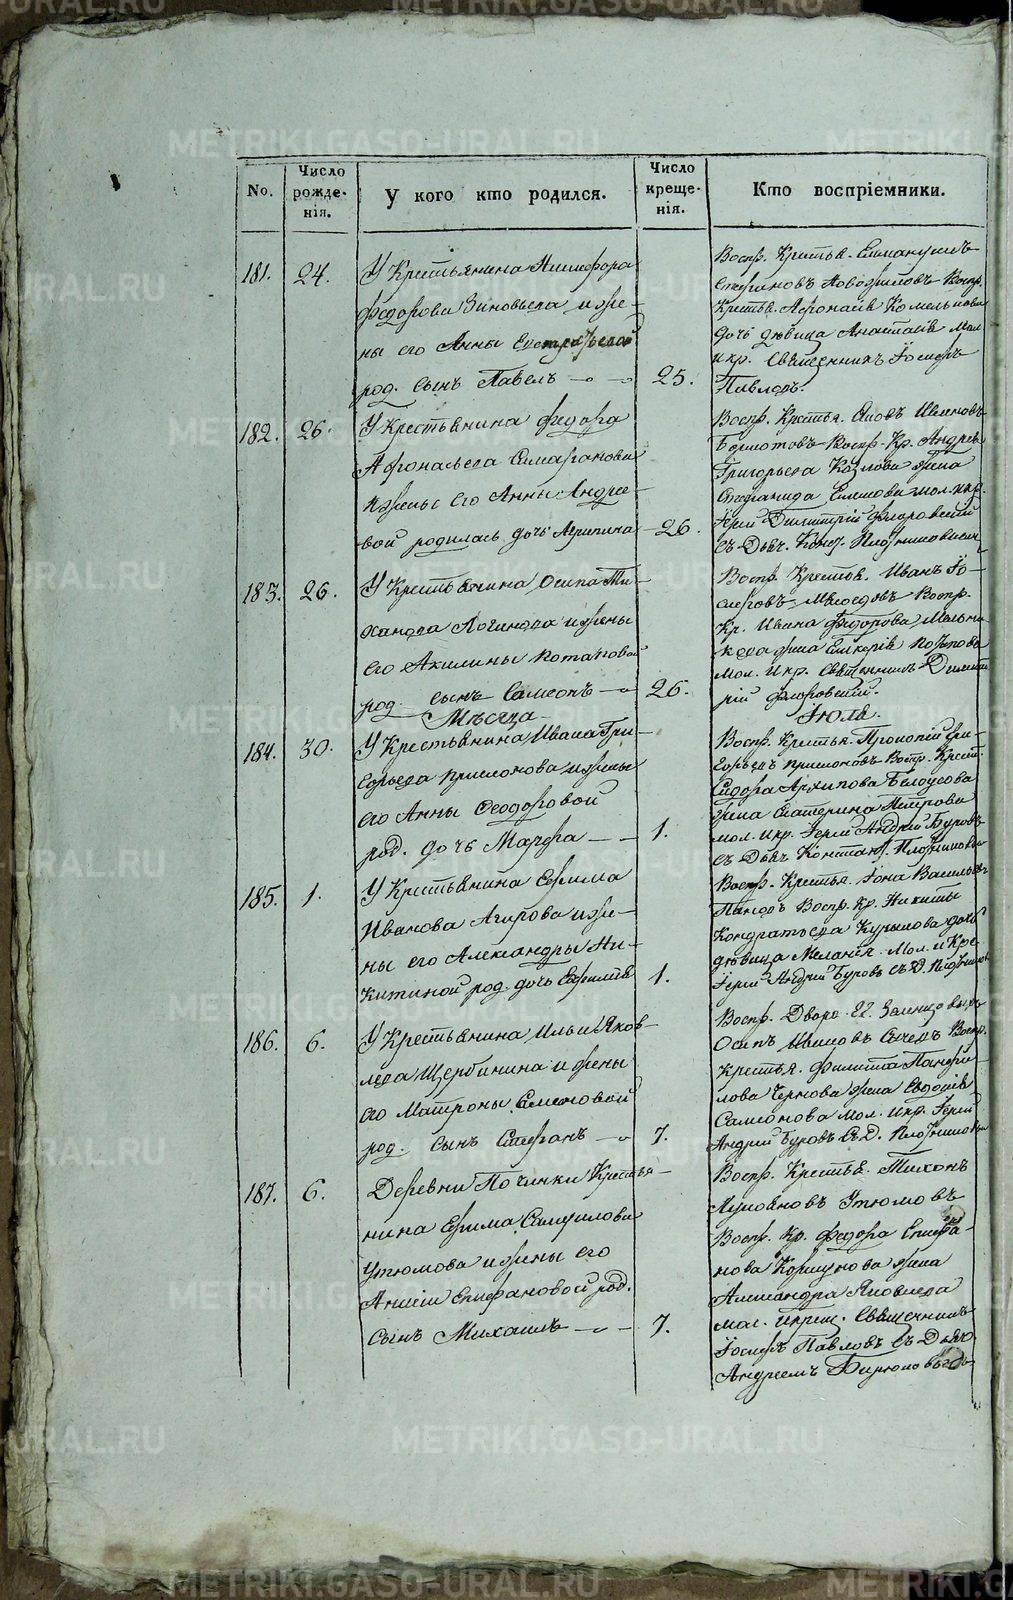 METRIKI.GASO-URAL.RU
No.
Число рожде-нія.
У кого кто родился.
Число креще-нія.
Кто воспріемники.
181. 24.
У Крестьянина Никифора
Федорова Зиновьева и же-
ны его Анны
род. сынъ Павелъ 25.
Воспр. Крестья.
Воспр.
Крестья.
дочь дѣвица Анастасія Мол.
и кр. Священникъ Іосифъ
Павловъ.
182. 26.
У Крестьянина Федора
Афонасьева
и жены его Анны Андре-
вой родилась дочь Агрипина 26.
Воспр. Крестья. Ивановъ
Воспр. Кр. Андрея
Григорьева Козлова жена
Степанида мол. и кр.
Іерей Димитрій Флоровскій
съ Дьяч. Конст.
183. 26.
У Крестьянина Осипа Ти-
ханова Логинова и жены
его Акилины Потаповой
род. сынъ Самсонъ 26.
Воспр. Крестья. Иванъ Іо-
сифовъ Воспр.
Кр. Ивана Федорова Мельни-
кова жена
Мол. и кр. Священникъ Димит-
рій Флоровскій.
Мѣсяца
Іюля.
184. 30.
У Крестьянина Ивана Гри-
горьева и жены
его Анны Феодоровой
род. дочь Марфа 1.
Воспр. Крестья. Прокопій Гри-
горьевъ Воспр. Крест.
Сидора Архипова Белоусова
жена Екатерина Петрова
мол. и кр. Іерей Андрей Буровъ
съ Дьяч. Констант.
185. 1.
У Крестьянина Ефима
Иванова и же-
ны его Александры Ни-
китиной род. дочь Евфимія 1.
Воспр. Крестья. Іона Васильевъ
Пановъ Воспр. Кр. Никиты
Кондратьева дочь
дѣвица Меланія Мол. и Кре.
Іерей Андрей Буровъ съ Д.
186. 6.
У Крестьянина Ильи Яков-
лева Щербинина и жены
его Матроны Семеновой
род. сынъ Стефанъ 7.
Воспр. Дворо.
Осипъ Ивановъ Воспр.
Крестья. Филипа Панфи-
лова Чернова жена Евдокія
Самсонова мол. и кр. Іерей
Андрей Буровъ съ Д.
187. 6.
Деревни Починки Крестья-
нина Ефима Самуилова
Утюмова и жены его
Анисіи Епифановой род.
сынъ Михаилъ 7.
Воспр. Крестья. Тихонъ
Утюмовъ
Воспр. Кр. Федора Епифа-
нова Коршунова жена
Александра Яковлева
мол. и крещ. Священникъ
Іосифъ Павловъ съ Дьяч.
Андреемъ